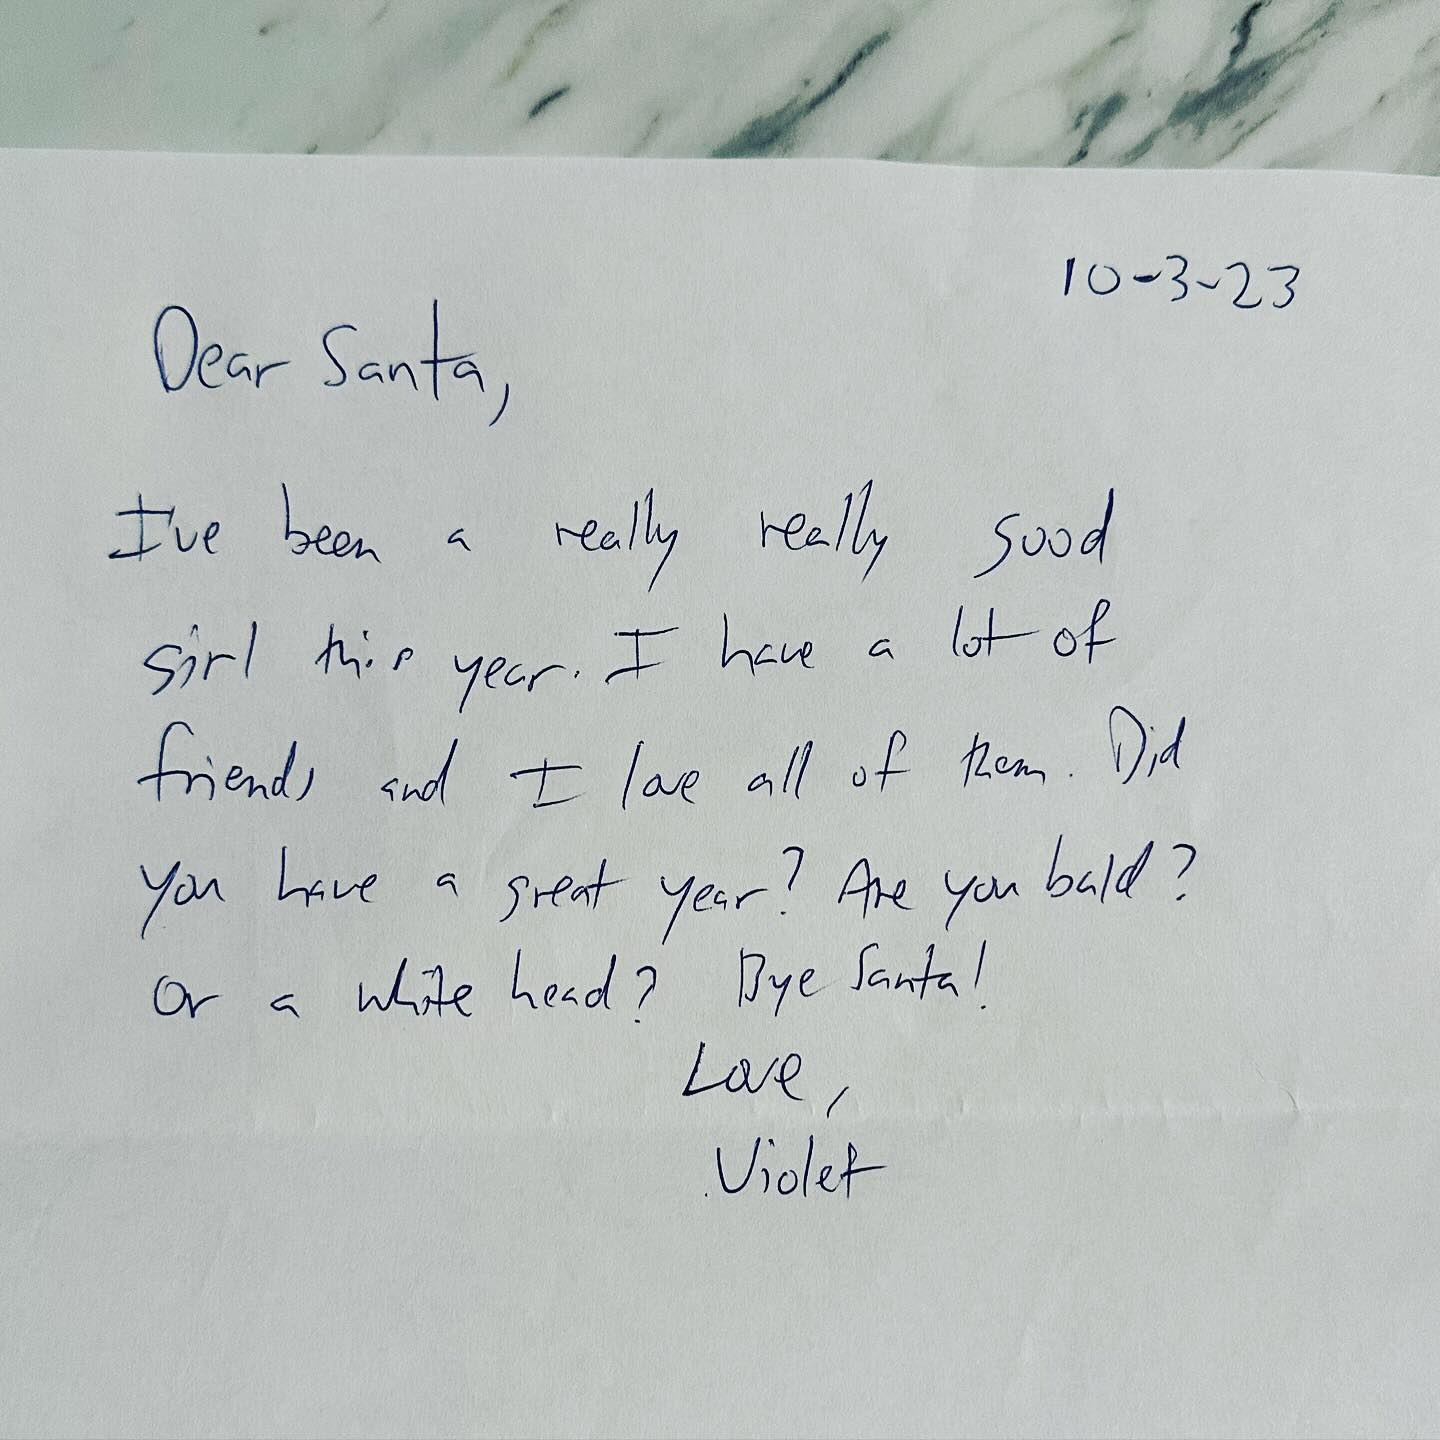 10-3-23
Dear Santa,
I've been a really really good
girl this year. I have a lot of
friends and I love all of them. Did
you have a great year? Are you bald?
Or a white head? Bye Santa!
Love,
Violet